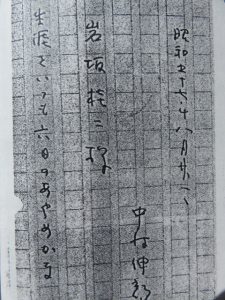 昭和五十
八月廿
中村伸郎
岩坂桂二様
生涯といつても六日のあやめかな